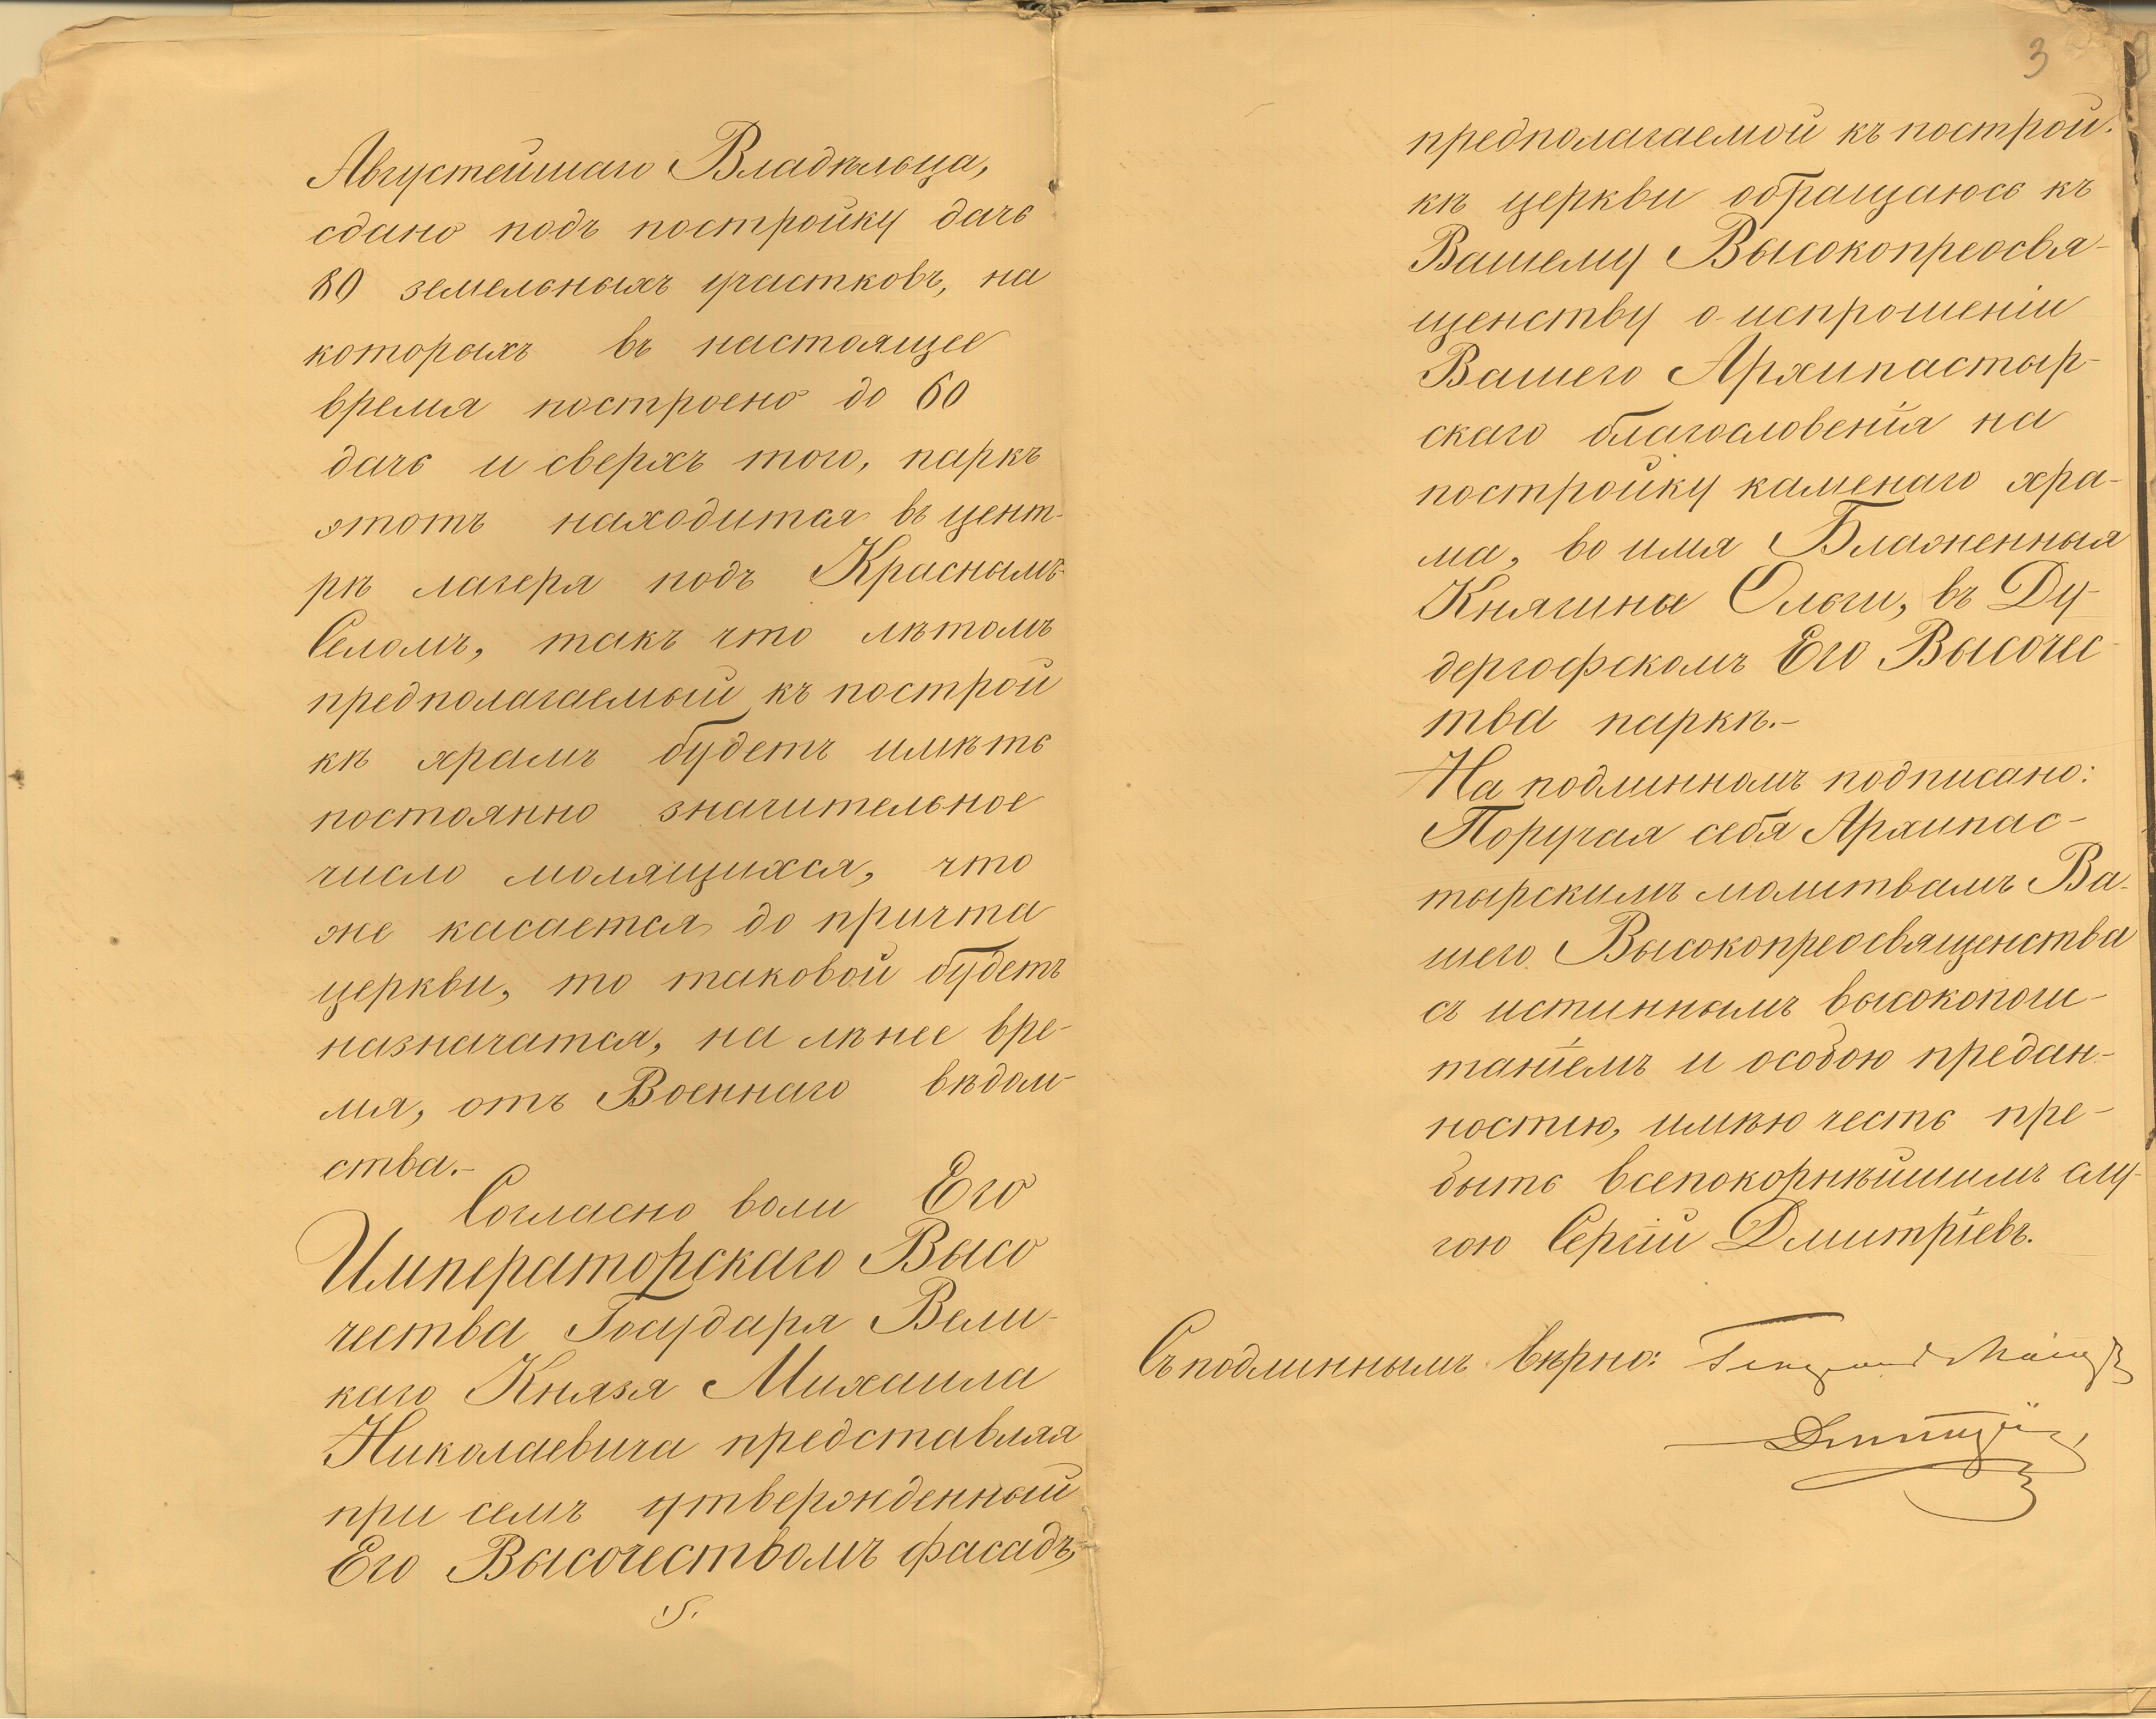 Августейшаго Владѣльца,
сдано подъ постройку дачь
80 земельныхъ участковъ, на
которыхъ въ настоящее
время построено до 60
дачь и сверхъ того, паркъ
этотъ находится въ цент-
рѣ лагеря подъ Краснымъ
Селомъ, такъ что лѣтомъ
предполагаемый къ построй
кѣ храмъ будетъ имѣть
постоянно значительное
число молящихся, что
же касается до причта
церкви, то таковой будетъ
назначатся, на лѣнее вре-
мя, отъ Военнаго вѣдом-
ства.-
Согласно воли Его
Императорскаго Высо
чества Государя Вели-
каго Князя Михаила
Николаевича представляя
при семъ утвержденный
Его Высочествомъ фасадъ,
3
предполагаемой къ построй-
кѣ церкви обращаюсь къ
Вашему Высокопреосвя-
щенству о испрошеніи
Вашего Архипастыр-
скаго благословенія на
постройку каменаго хра-
ма, во имя Блаженныя
Княгины Ольги, въ Ду-
дергофскомъ Его Высочес-
тва паркѣ.-
На подлинномъ подписано:
Поручая себя Архипас-
тырскимъ молитвамъ Ва-
шего Высокопреосвященства
съ истиннымъ высокопочи-
таніемъ и особою предан-
ностію, имѣю честь пре-
быть всепокорнѣйшимъ слу-
гою Сергій Дмитріевъ.
Съ подлиннымъ вѣрно: